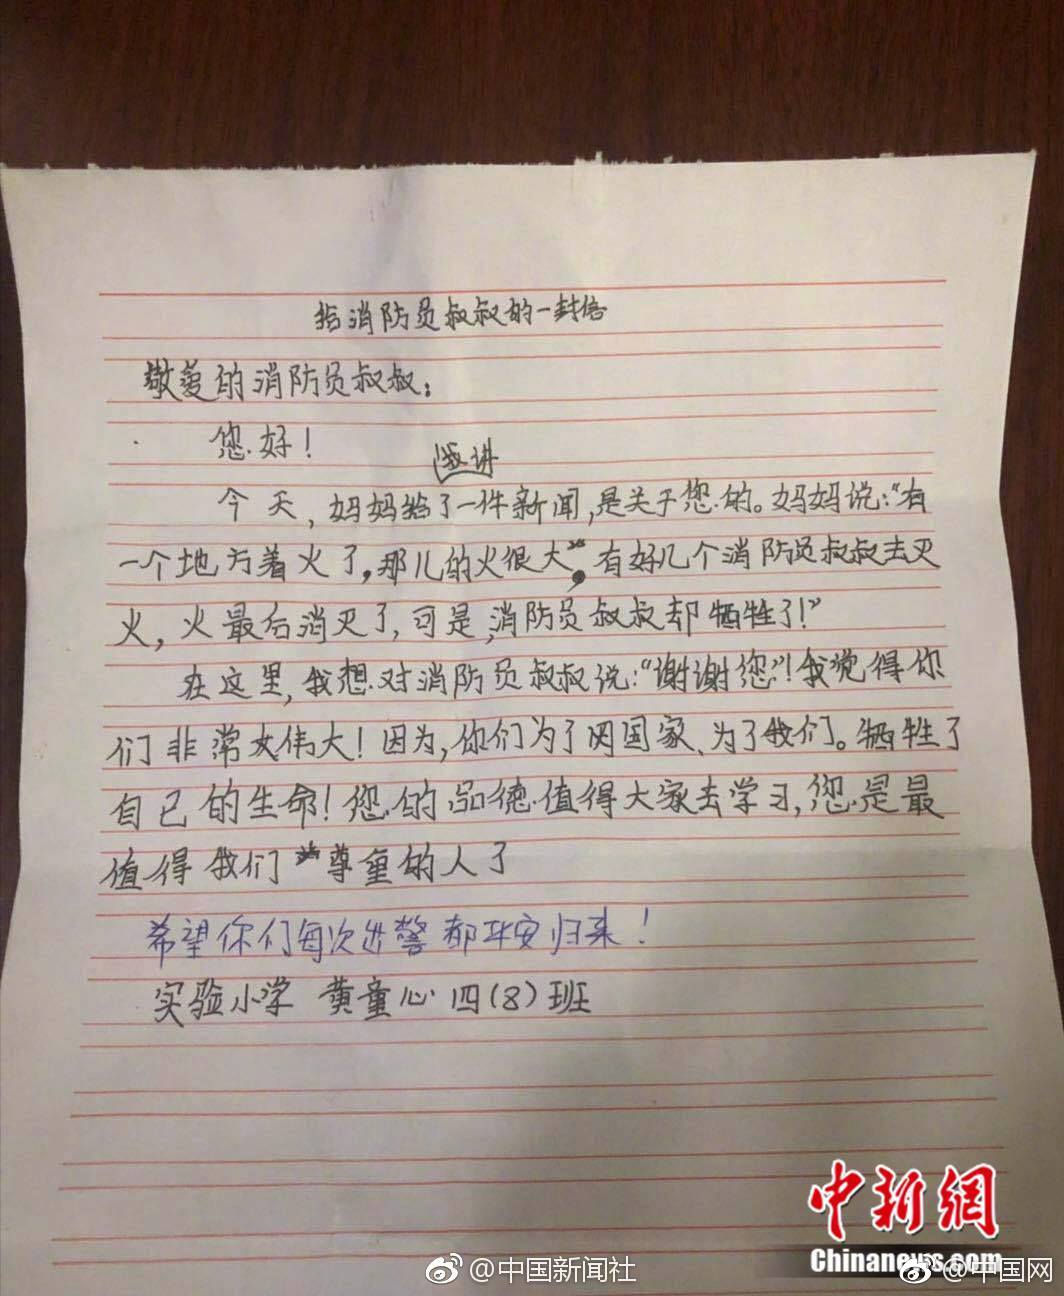 给消防员叔叔的一封信
敬爱的消防员叔叔：
您好！
我讲
今天，妈妈给了一件新闻，是关于您的。妈妈说：“有
一个地方着火了，那儿的火很大，有好几个消防员叔叔去灭
火，火最后消灭了，可是，消防员叔叔却牺牲了！”
在这里，我想对消防员叔叔说：“谢谢您”！我觉得你
们非常伟大！因为，你们为了国家、为了我们。牺牲了
自己的生命！您的品德值得大家去学习，您是最
值得我们尊重的人了
希望你们每次出警都平安归来！
实验小学 黄童心 四(8)班
中新網
Chinanews.com
@中国新闻社
@中国网